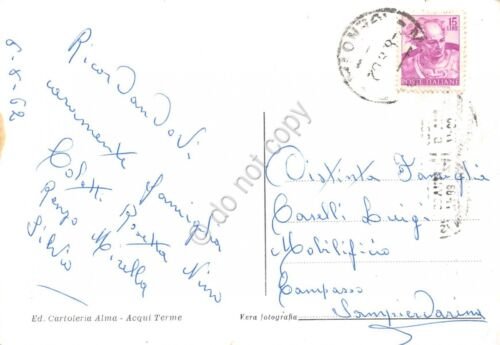 6-8-62
Ricordandovi
caramente
famiglia
Coletti Rosetta Nino
Renzo Mirella
Silvio
Ed. Cartoleria Alma - Acqui Terme
Vera fotografia
15
LIRE
POSTE ITALIANE
Distinta Famiglia
Caselli Luigi
Mobilificio
Campasso
Sampierdarena
do not copy